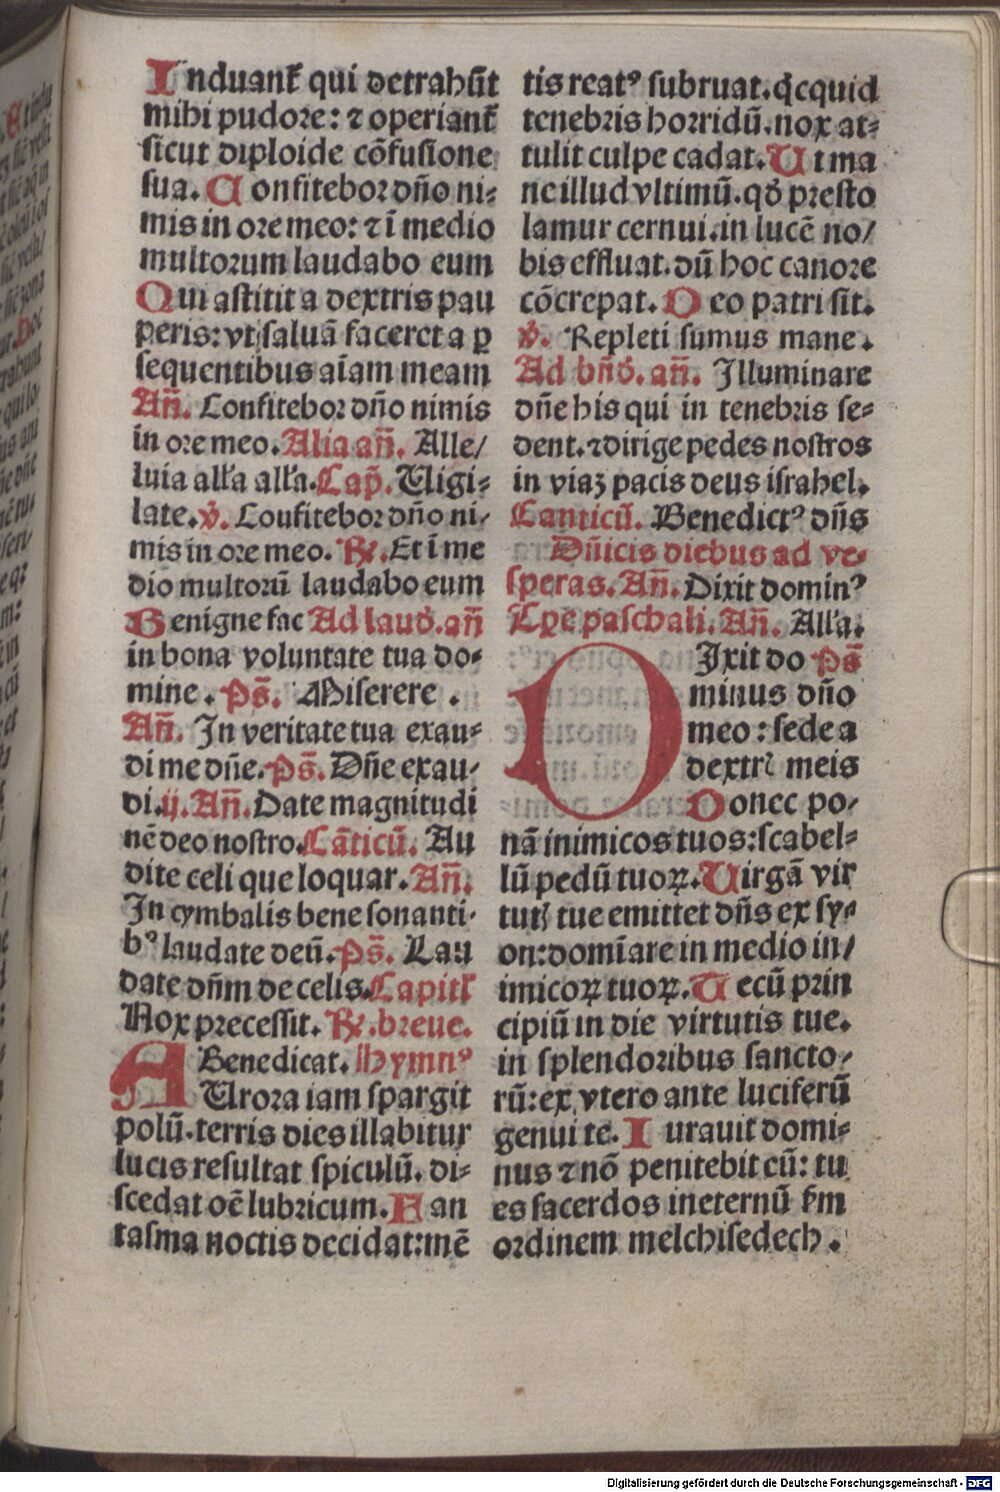 Induant᷑ qui detrahũt
mihi pudore: ⁊ operiant᷑
sicut diploide cõfusione
sua. Confitebor dño ni⸗
mis in ore meo: ⁊ ĩ medio
multorum laudabo eum
Qui astitit a dextris pau
peris: vt saluã faceret a ꝑ
sequentibus aĩam meam
Añ. Confitebor dño nimis
in ore meo. Alia añ. Alle/
luia all'a all'a. Cap̃. Uigi⸗
late. v̊. Confitebor dño ni/
mis in ore meo. ℞. Et ĩ me
dio multorũ laudabo eum
Benigne fac Ad laud̾. añ
in bona voluntate tua do⸗
mine. Ps̃. Miserere.
Añ. In veritate tua exau⸗
di me dñe. Ps̃. Dñe exau/
di. ij. Añ. Date magnitudi
nẽ deo nostro. Cãticũ. Au
dite celi que loquar. Añ.
In cymbalis bene sonanti⸗
bꝰ laudate deũ. Ps̃. Lau
date dñm de celis. Capitl'
Nox precessit. ℞. breue.
Benedicat. Hymnꝰ
AUrora iam spargit
polũ. terris dies illabitur
lucis resultat spiculũ. di⸗
scedat oẽ lubricum. Fan
tasma noctis decidat: mẽ
tis reatꝰ subruat. qͥcquid
tenebris horridũ. nox at⸗
tulit culpe cadat. Ut ma
ne illud vltimũ. qd̾ presto
lamur cernui. in lucẽ no/
bis effluat. dũ hoc canore
cõcrepat. Deo patri sit.
v̊. Repleti sumus mane.
Ad bñd̾. añ. Illuminare
dñe his qui in tenebris se⸗
dent. ⁊ dirige pedes nostros
in viaꝫ pacis deus israhel.
Canticũ. Benedictꝰ dñs
Dñicis diebus ad ve⸗
speras. Añ. Dixit dominꝰ
Tꝑe paschali. Añ. All'a.
DIxit do Ps̃
minus dño
meo: sede a
dextrꝭ meis
Donec po/
nã inimicos tuos: scabel⸗
lũ pedũ tuoꝝ. Uirgã vir
tutꝭ tue emittet dñs ex sy⸗
on: domĩare in medio in/
imicoꝝ tuoꝝ. Tecũ prin
cipiũ in die virtutis tue.
in splendoribus sancto/
rũ: ex vtero ante luciferũ
genui te. Iurauit domi⸗
nus ⁊ nõ penitebit eũ: tu
es sacerdos in eternũ ẜm
ordinem melchisedech.
Digitalisierung gefördert durch die Deutsche Forschungsgemeinschaft - DFG